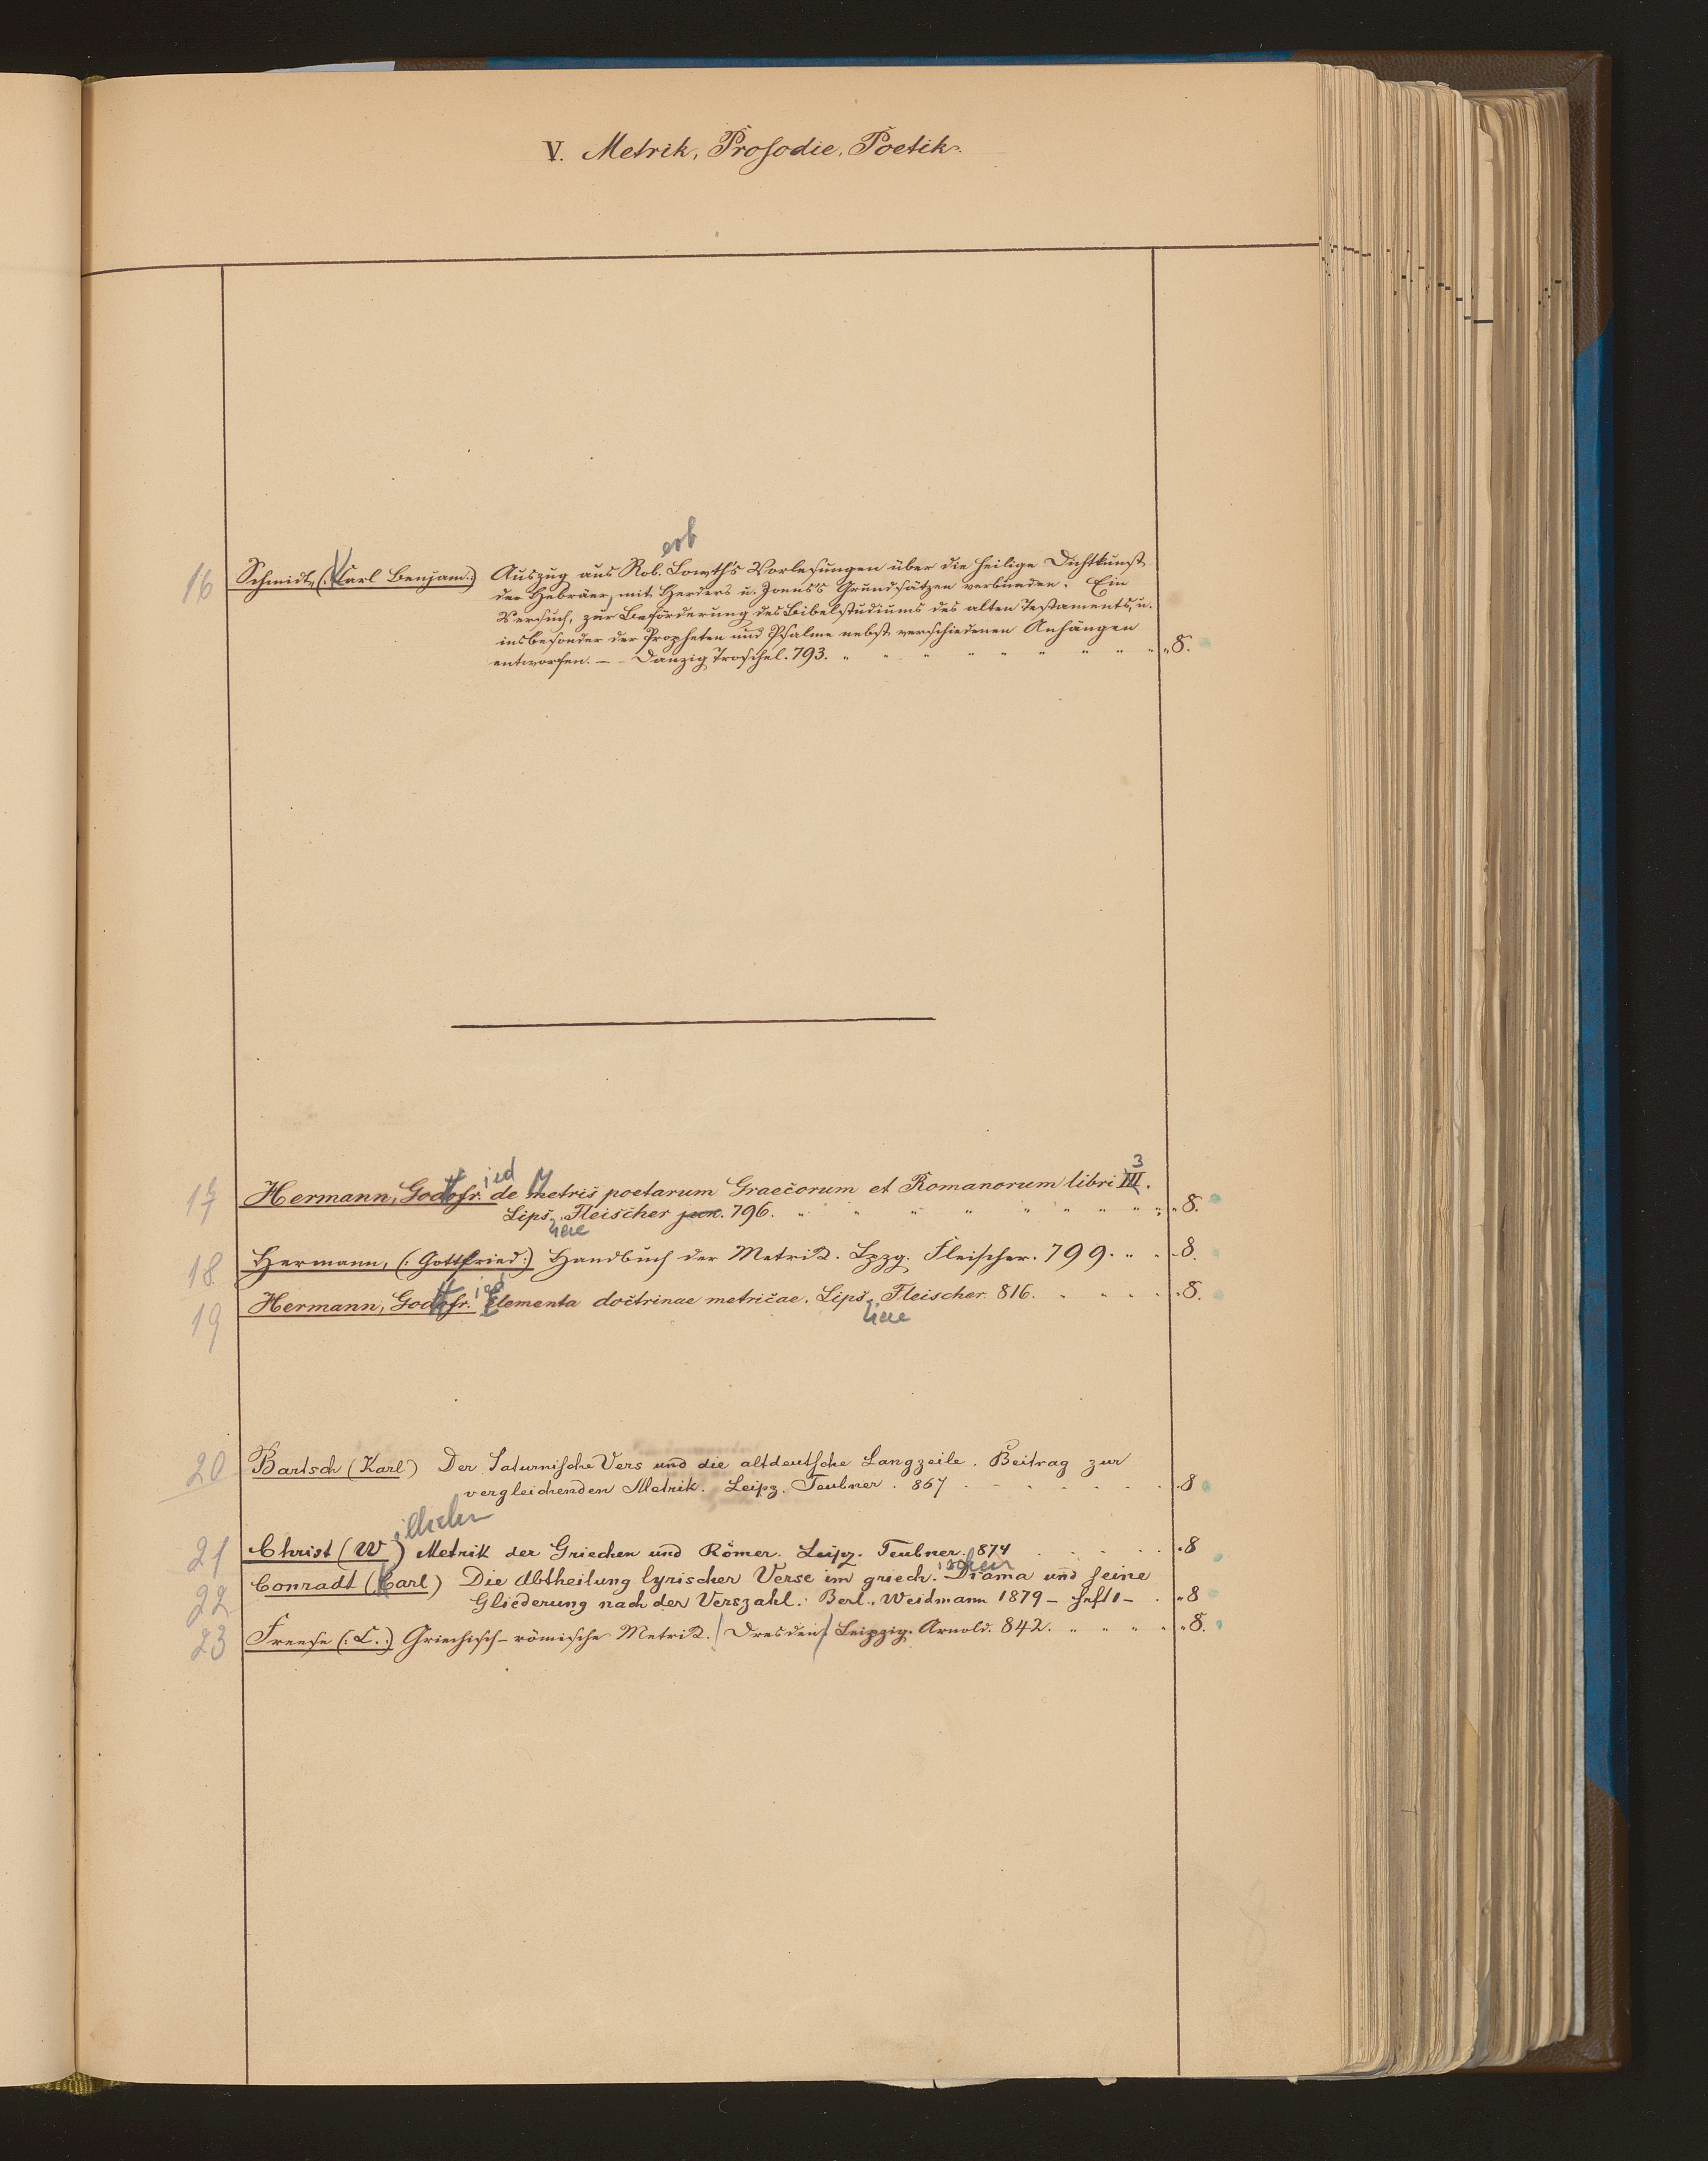 V. Metrik, Prosodie, Poetik.
ert
16 Schmidt, (: Karl Benjam.:) Auszug aus Rob. Lowth's Vorlesungen über die heilige Dichtkunst
der Hebräer, mit Herders u. Jones's Grundsätzen verbunden. Ein
Versuch, zur Beförderung des Bibelstudiums des alten Testaments, u.
insbesonder der Propheten und Psalme nebst verschiedenen Anhängen
entworfen. — – Danzig Troschel. 793. „ 8.
tt ied M 3
17 Hermann, Godofr. de metris poetarum Graecorum et Romanorum libri III.
Lips. Fleischer jun. 796. „ 8.
iae
18 Hermann, (: Gottfried:) Handbuch der Metrik. Lpzg. Fleischer. 799. „ 8.
tt ied
19 Hermann, Godofr. Elementa doctrinae metricae. Lips. Fleischer. 816. „ 8.
iae
20 Bartsch (Karl) Der Saturnische Vers und die altdeutsche Langzeile. Beitrag zur
vergleichenden Metrik. Leipz. Teubner. 867 . 8
ilhelm
21 Christ (W) Metrik der Griechen und Römer. Leipz. Teubner. 874 . 8
ischen
22 Conradt (Karl) Die Abtheilung lyrischer Verse im griech. Drama und seine
Gliederung nach der Verszahl. Berl., Weidmann 1879 – Heft 1 – „ 8
23 Freese (: C.:) Griechisch-römische Metrik. / Dresden / Leipzig. Arnold. 842. „ 8.